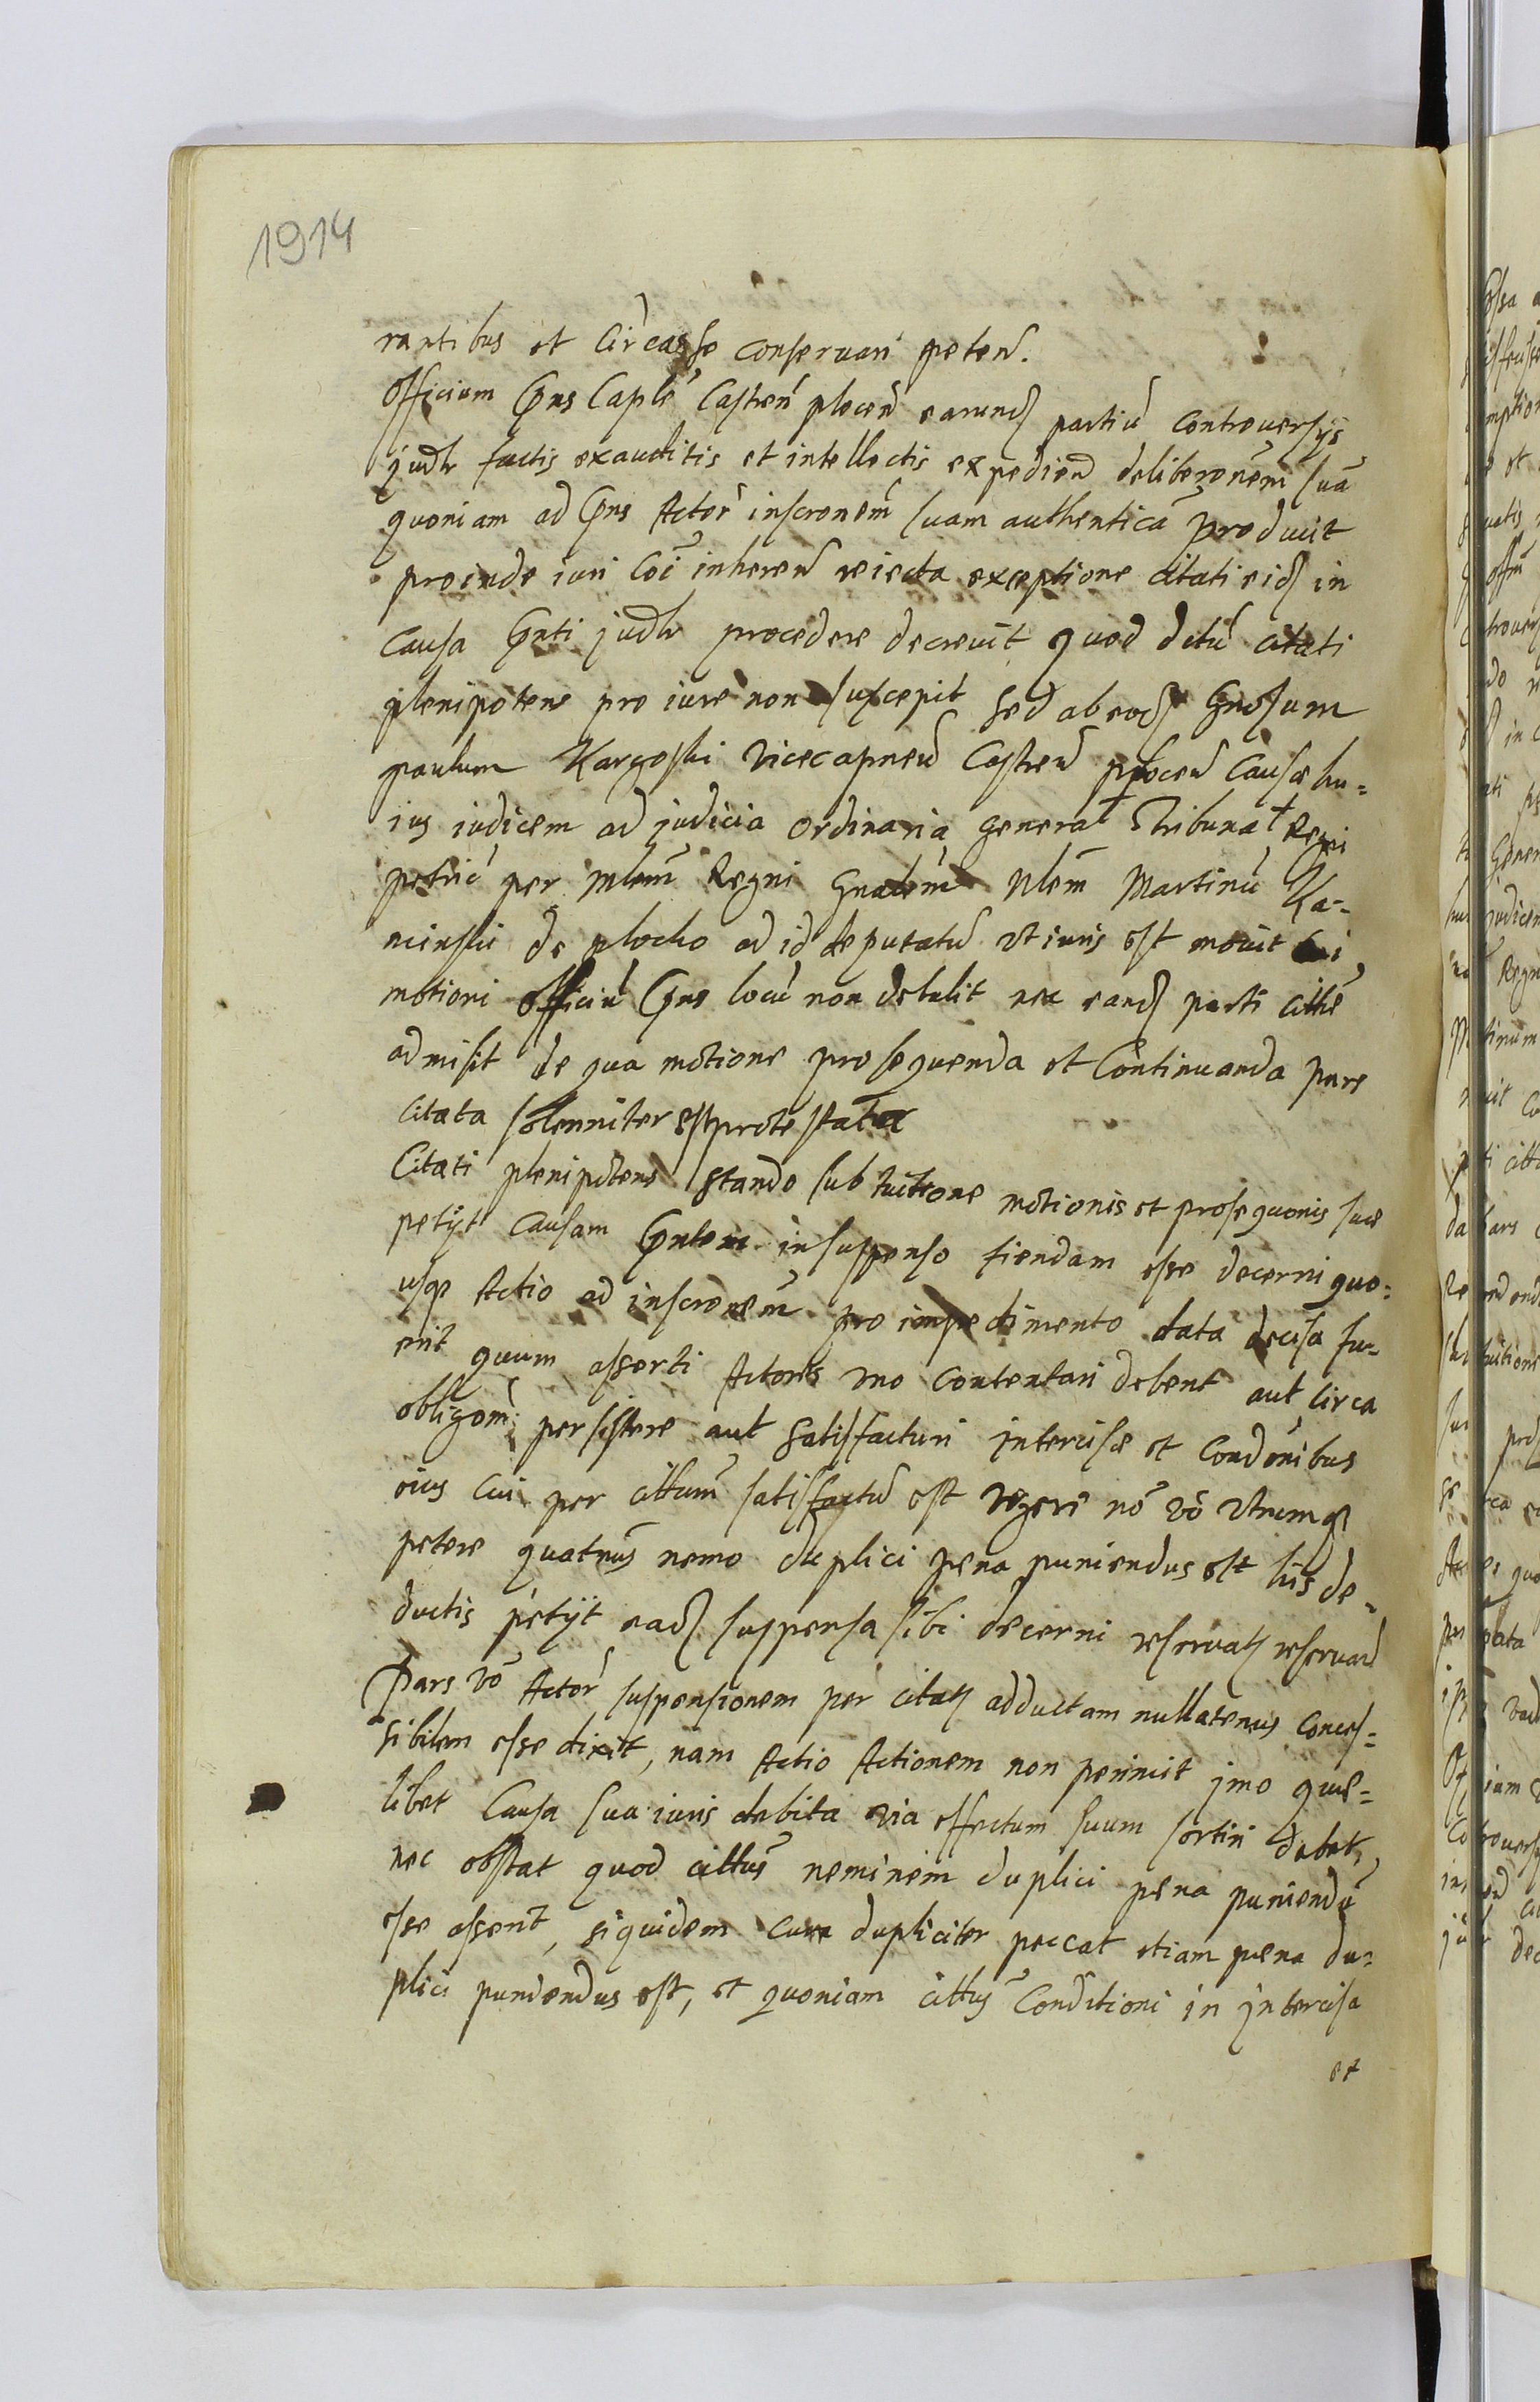 1914
rantibus et Circa esse conseruari peten̄.
Officium Pn̄s Capl̄e Castren̄ plocen̄ earund partiū controuersijs
judr factis exauditis et intellectis expedien̄ deliberōnem suā
quoniam ad Pn̄s Actor̄ inscrōnem suam authenticā produxit
proinde iuri Cōi inheren̄ reiecta exceptione citati eid in
Causa Pn̄ti judr procedere decreuit quod dictū citati
plenipotens pro iure non suscepit sed ab eod Gn̄osum
paulum Kargoski Vicecapneū Castren̄ plocen̄ Causæ hu=
ius iudicem ad judicia ordinaria general Tribunal Regni
petric̄ per Mlem̄ Regni Gnalem̄ Nlem̄ Martinū Ka-
minski de plocko ad id deputatū vt iuris est mouit Cui
motioni officiū Pn̄s locū non detulit nec eand parti citt̄e
admisit de qua motione prosequenda et Continuanda pars
citata solenniter est protestata
Citati plenipotens stando sub tuitione motionis et prosequōnis suæ
petijt causam Pn̄tem in suspenso fiendam esse decerni quo=
usqe Actio ad inscrōnem pro impedimento data decisa fu=
erit quum asserti Actores vno contentari debent aut circa
obligōm̄ persistere aut satisfacturi intercisæ et condōnibus
eius cui per cittum̄ satisfactū est vegere nō vō vtrumq
petere quatn̄us nemo duplici pena puniendus est his de=
ductis petijt ead suspensa sibi decerni reseruat reseruan̄
Pars vō Actor̄ suspensionem per citat adductam nullatenus conces=
sibilem esse dixit, nam Actio Actionem non perimit jmo quæ=
libet Causa sua iuris debita via effectum suum sortiri debet,
nec obstat quod cittus̄ neminem duplici pena puniendū
esse asserit, siquidem dupliciter peccat etiam pæna du=
plici puniendus est, et quoniam cittus̄ Conditioni in jntercisa
et